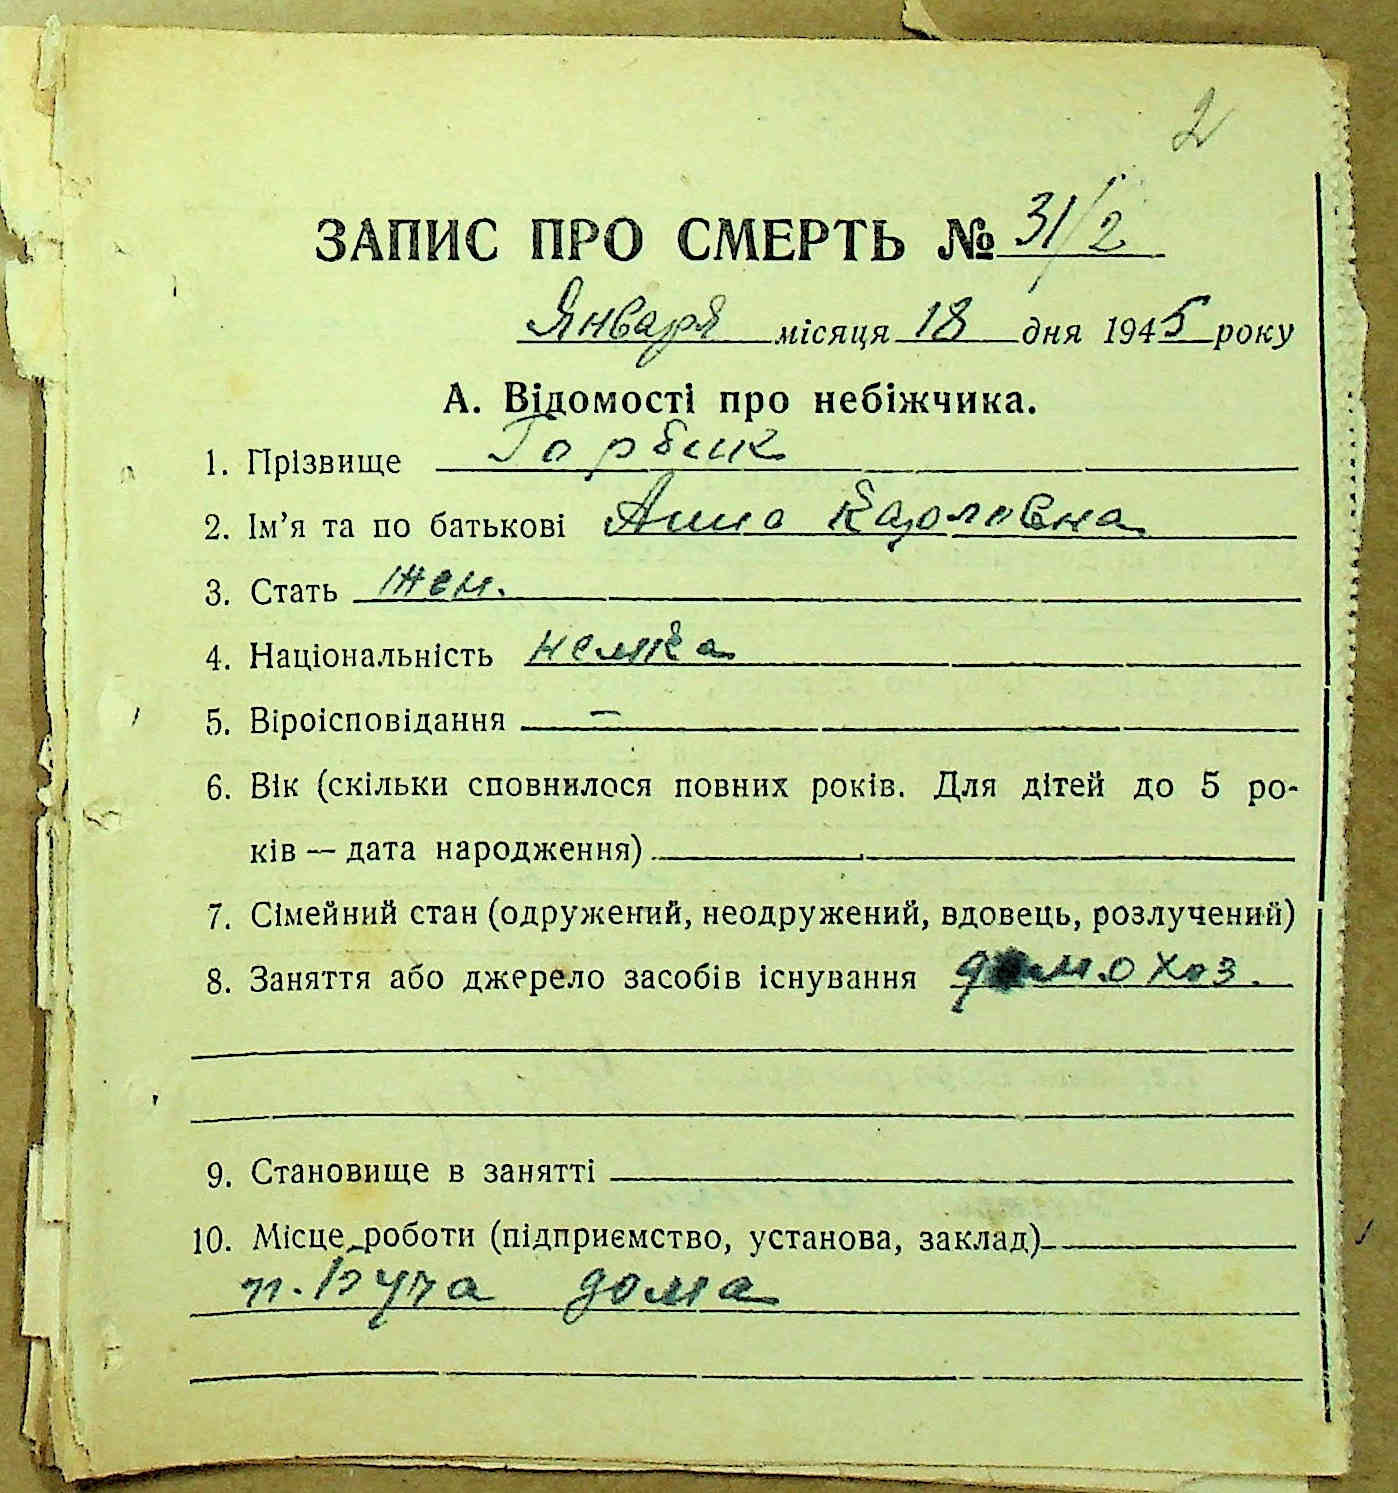 2
ЗАПИС ПРО СМЕРТЬ № 31/2
Января місяця 18 дня 1945 року
А. Відомості про небіжчика.
1. Прізвище Горбик
2. Ім'я та по батькові Анна Карловна
3. Стать жен.
4. Національність немка
5. Віроісповідання —
6. Вік (скільки сповнилося повних років. Для дітей до 5 ро-
ків — дата народження)
7. Сімейний стан (одружений, неодружений, вдовець, розлучений)
8. Заняття або джерело засобів існування домохоз.
9. Становище в занятті
10. Місце роботи (підприємство, установа, заклад)
п. Буча дома